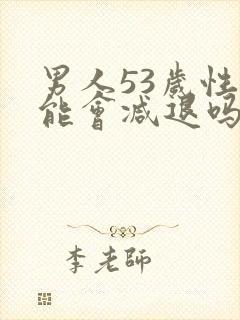 男人53歲性
能會減退吗
李老師